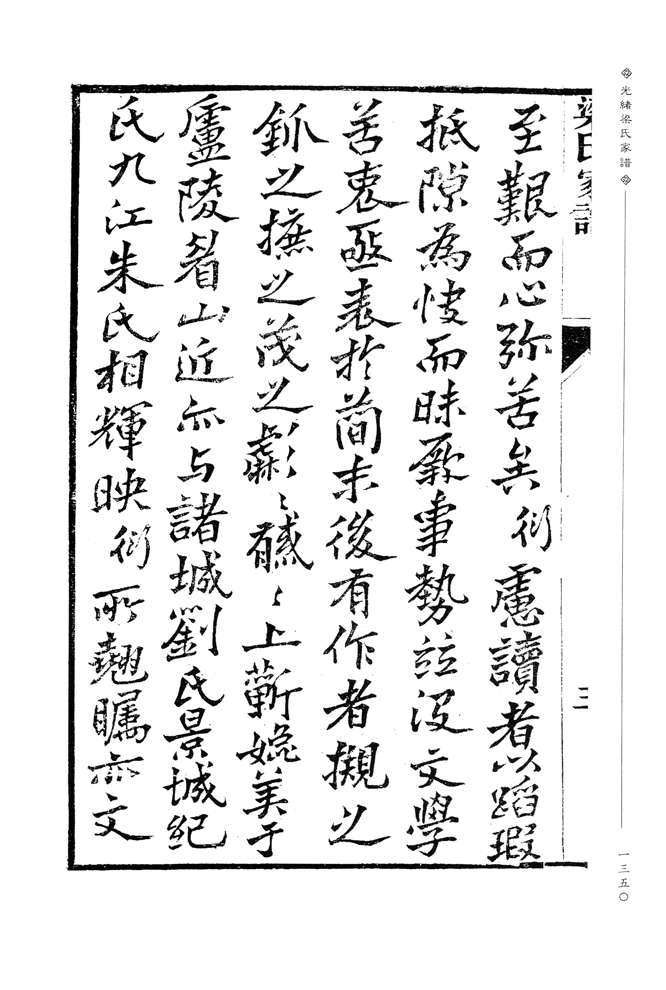 光緒梁氏家譜
一三五〇
梁氏家譜
三
至艱而心弥苦矣衍慮讀者以蹈瑕
抵隙為快而昧厥事勢竝沒文學
苦衷亟表於簡末後有作者覩之
釽之摭之茂之彪彪彧彧上蘄媲美于
廬陵眉山近亦与諸城劉氏景城紀
氏九江朱氏相輝映衍所翹矚亦文